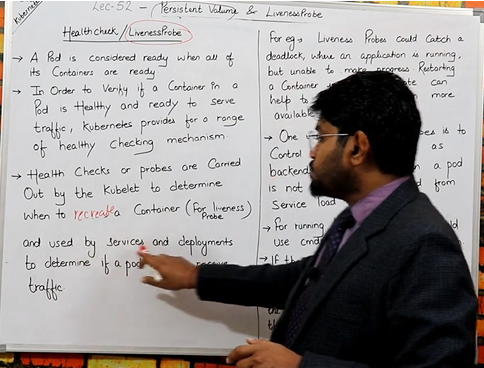 Kubernetes
Lec-52 - (Persistent Volume & LivenessProbe
Healthcheck/LivenessProbe
→ A Pod is considered ready when all of
its Containers are ready
→ In Order to Verify if a Container in a
Pod is Healthy and ready to serve
traffic, Kubernetes provides for a range
of healthy checking mechanism
→ Health Checks or probes are Carried
Out by the Kubelet to determine
when to recreate a Container (For liveness
Probe)
and used by services and deployments
to determine if a pod
traffic
For eg → Liveness Probes Could Catch a
deadlock, where an application is running,
but unable to make progress Restarting
a Container can
help to more
available
→ One is to
Control as
backend a pod
is not from
Service load
→ For running
use cmd
→ If th